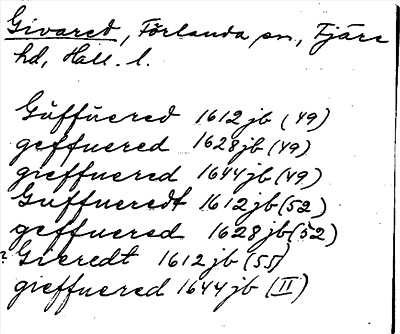 Givared, Förlanda sn, Fjäre
hd, Hall. l.
Güffüered 1612 jb (49)
geffuered 1628 jb (49)
gieffuered 1644 jb (49)
Guffueredt 1612 jb (52)
geffuered 1628 jb (52)
? Gieredt 1612 jb (55)
gieffuered 1644 jb (II)